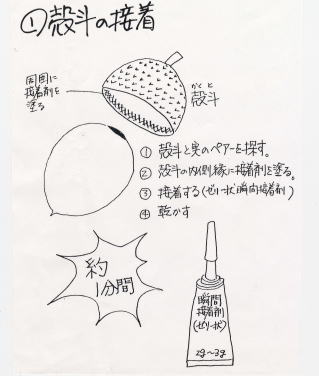 ①殻斗の接着
周囲に
接着剤を
塗る
かくと
殻斗
① 殻斗と実のペアーを探す。
② 殻斗の内側縁に接着剤を塗る。
③ 接着する(ゼリー状瞬間接着剤)
④ 乾かす
約
1分間
瞬間
接着剤
(ゼリー状)
2g〜3g